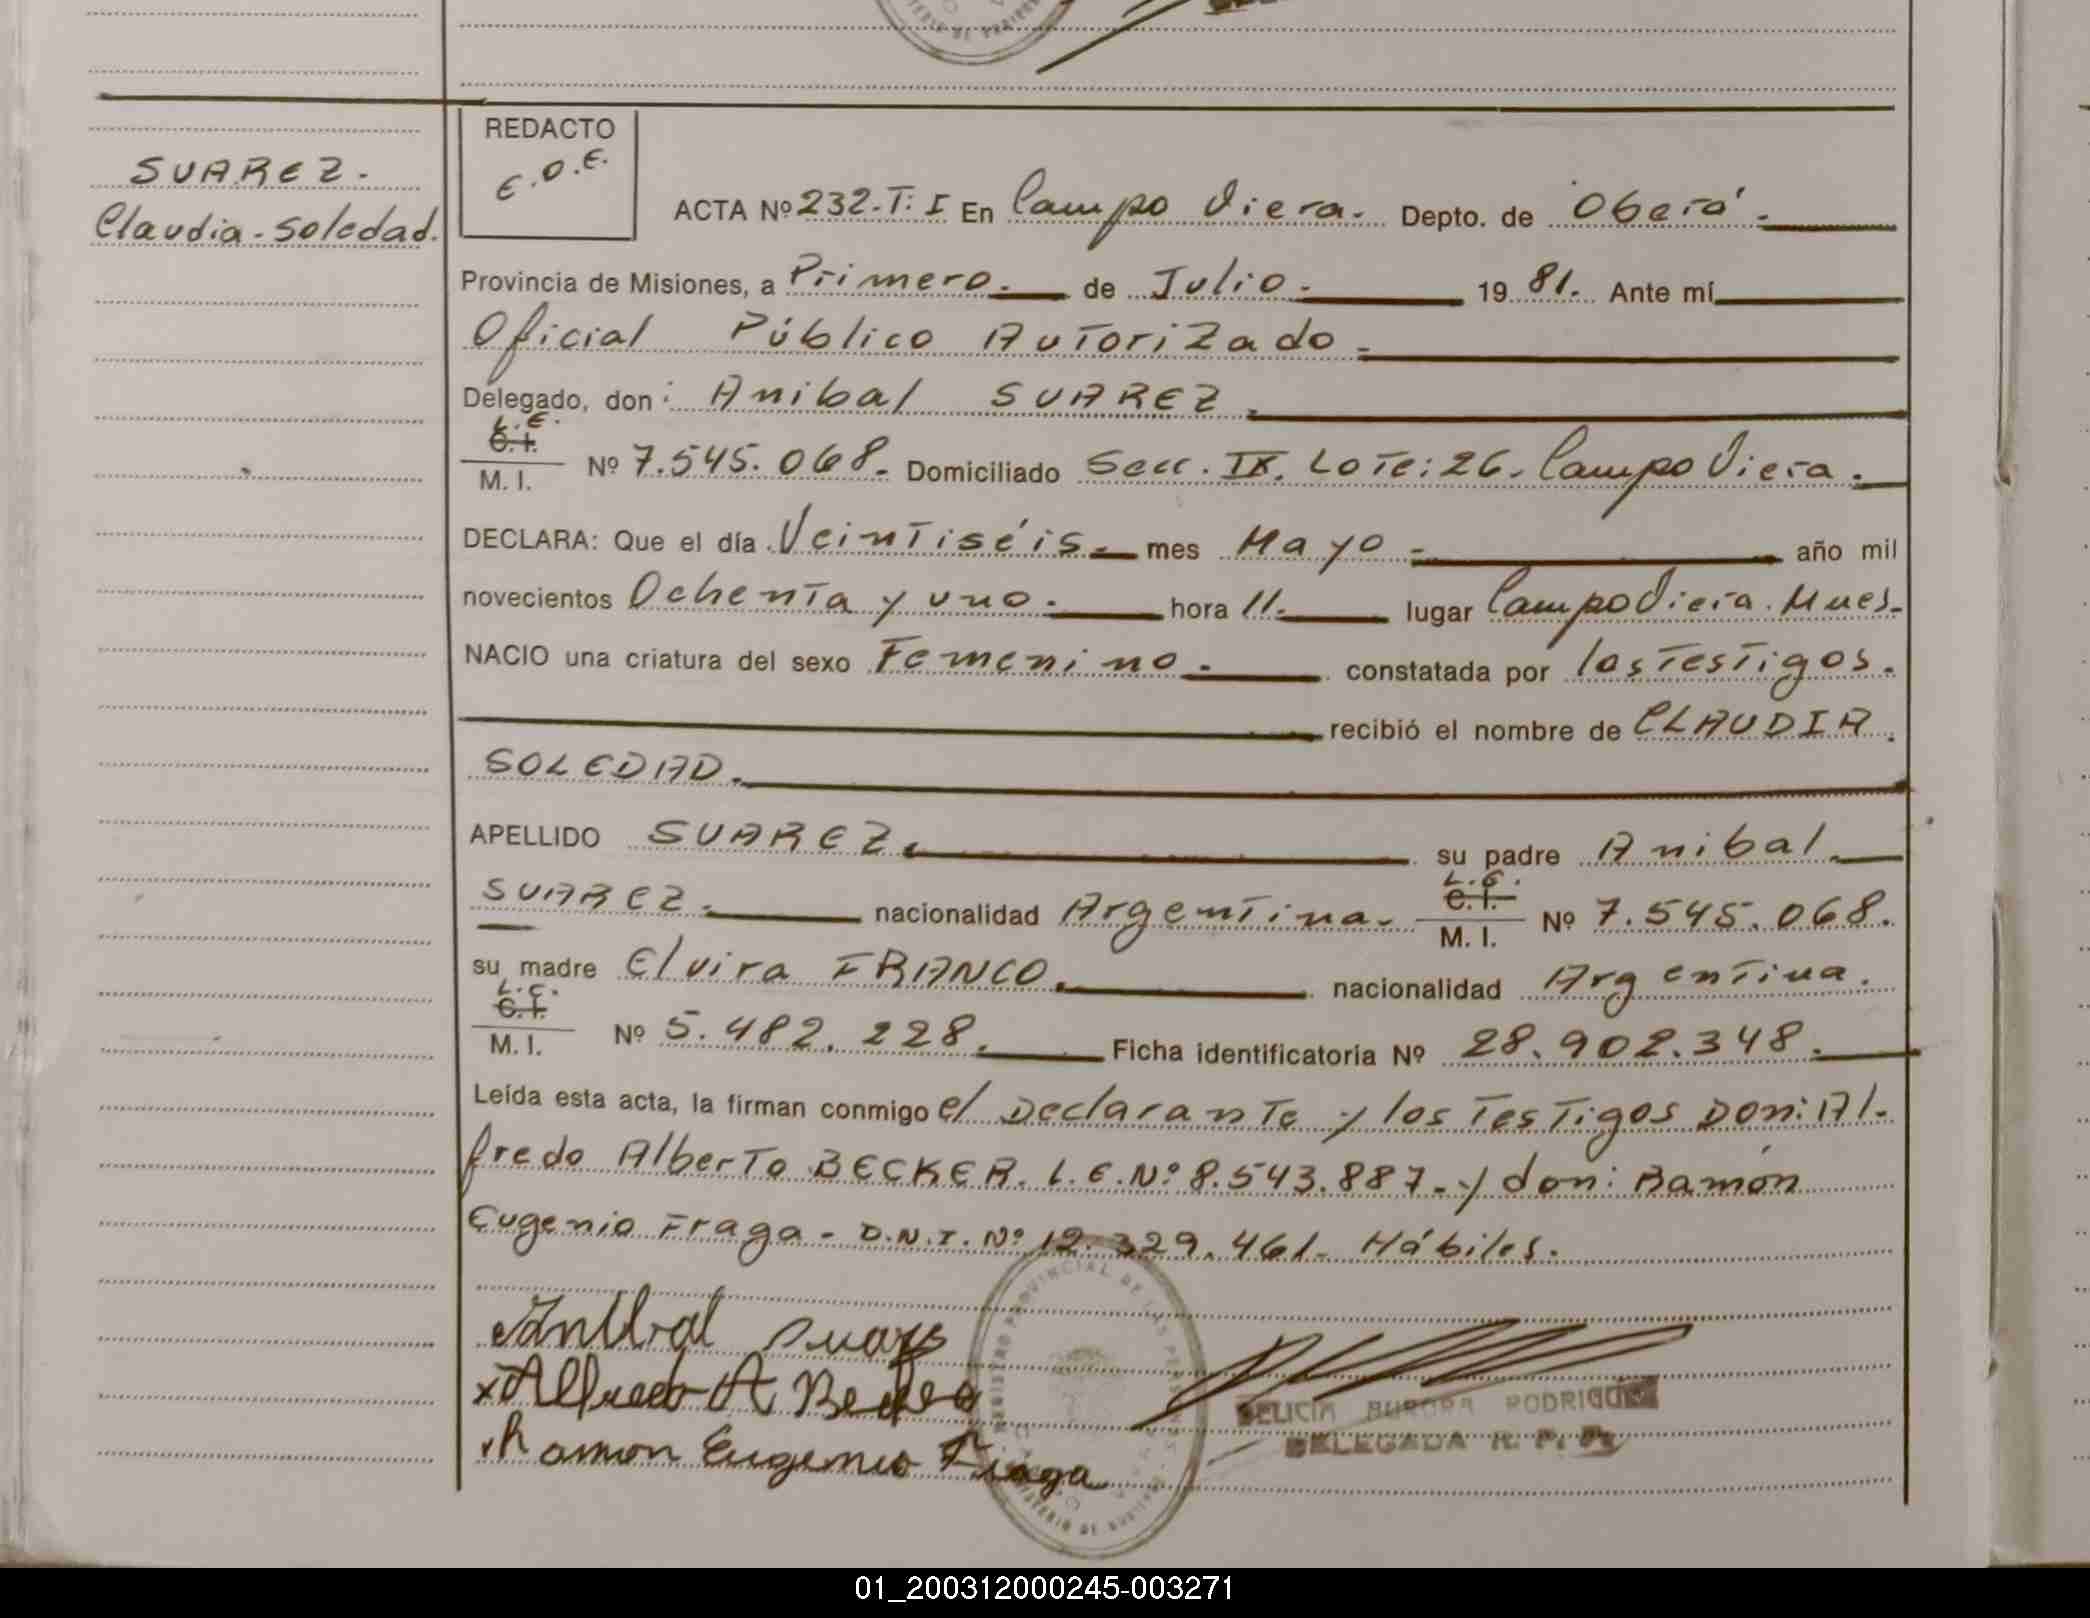 REDACTO
E.O.E.
SUAREZ.
Claudia-Soledad.
ACTA Nº 232-T: I En Campo Viera. Depto. de Oberá.
Provincia de Misiones, a Primero. de Julio. 19 81. Ante mí
Oficial Público Autorizado.
Delegado, don: Anibal SUAREZ.
L.E.
C.I.
M. I. Nº 7.545.068. Domiciliado Secc. IX. Lote: 26. Campo Viera.
DECLARA: Que el día Veintiséis. mes Mayo. año mil
novecientos Ochenta y uno. hora 11. lugar Campo Viera. Mnes.
NACIO una criatura del sexo Femenino. constatada por los Testigos.
recibió el nombre de CLAUDIA
SOLEDAD.
APELLIDO SUAREZ. su padre Anibal
SUAREZ. nacionalidad Argentina. L.E. C.I. M. I. Nº 7.545.068.
su madre Elvira FRANCO. nacionalidad Argentina.
L.C.
C.I.
M. I. Nº 5.482.228. Ficha identificatoria Nº 28.902.348.
Leída esta acta, la firman conmigo el Declarante y los Testigos Don: Al-
fredo Alberto BECKER. L.E. Nº 8.543.887. y don: Ramón
Eugenio Fraga - D.N.I. Nº 12.329.461. Hábiles.
Anibal Suarez
x Alfredo A Becker
Ramon Eugenio Fraga
REGISTRO PROVINCIAL DE LAS PERSONAS
MINISTERIO DE GOBIERNO
DELICIA AURORA RODRIGUEZ
DELEGADA R. P. P.
01_200312000245-003271